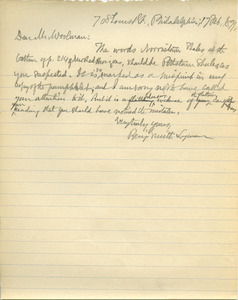 708 Locust St., Philadelphia, 17 Feb.
Dear Mr. Woolman:
The words Norristown Shales at
bottom of p. should be Pottstown Shales as
you suspected. It is marked as a misprint in my
copy of the pamphlet, and I am sorry not to have called
your attention to it. And it is a evidence of your careful
reading that you should have noticed the mistake.
Very truly yours,
Benj. Smith Lyman